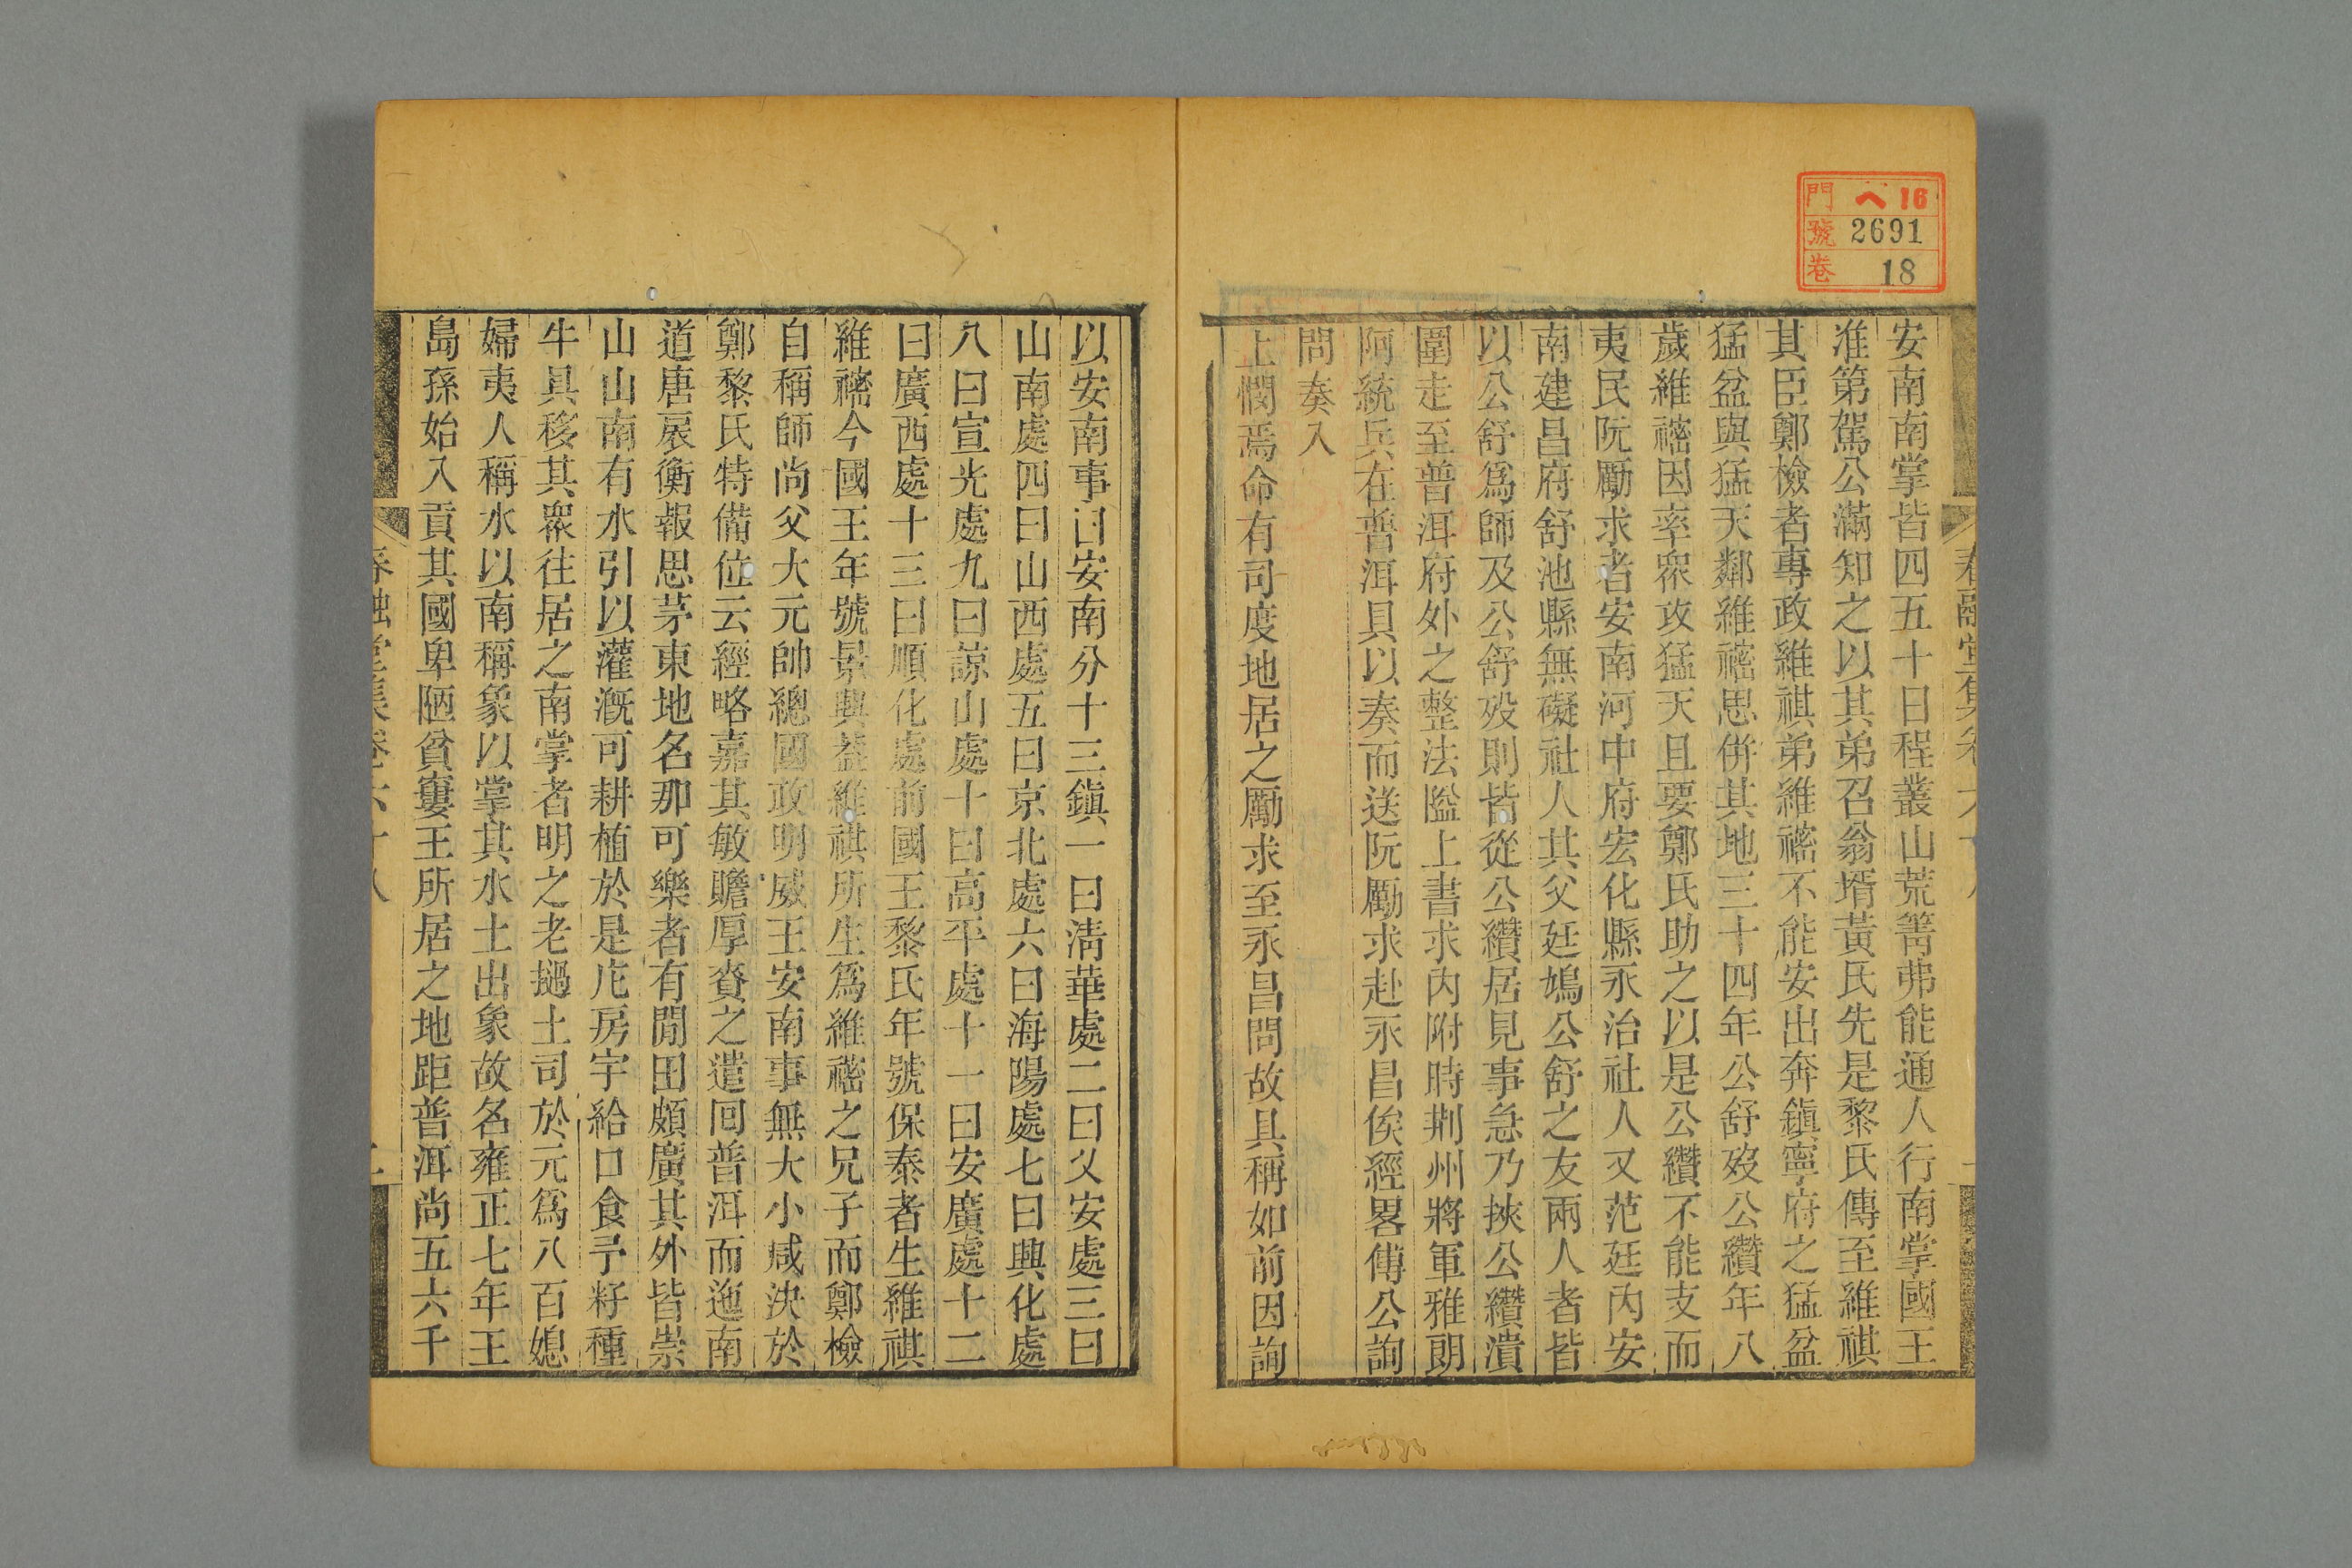 門 ヘ16
號 2691
卷 18
安南南掌皆四五十日程叢山荒箐弗能通人行南掌國王
准第駕公滿知之以其弟召翁壻黃氏先是黎氏傳至維祺
其臣鄭檢者專政維祺弟維𥛚不能安出奔鎮寧府之猛盆
猛盆與猛天鄰維𥛚思併其地三十四年公舒歿公纘年八
歲維𥛚因率衆攻猛天且要鄭氏助之以是公纘不能支而
夷民阮勵求者安南河中府宏化縣永治社人又范廷內安
南建昌府舒池縣無礙社人其父廷鳩公舒之友兩人者皆
以公舒爲師及公舒歿則皆從公纘居見事急乃挾公纘潰
圍走至普洱府外之整法隘上書求內附時荆州將軍雅朗
阿統兵在普洱具以奏而送阮勵求赴永昌俟經畧傅公詢
問奏入
上憫焉命有司度地居之勵求至永昌問故具稱如前因詢
春融堂集卷六十八
以安南事曰安南分十三鎮一曰淸華處二曰乂安處三曰
山南處四曰山西處五曰京北處六曰海陽處七曰興化處
八曰宣光處九曰諒山處十曰高平處十一曰安廣處十二
曰廣西處十三曰順化處前國王黎氏年號保泰者生維祺
維𥛚今國王年號景興葢維祺所生爲維𥛚之兄子而鄭檢
自稱師尚父大元帥總國政明威王安南事無大小咸決於
鄭黎氏特備位云經略嘉其敏贍厚賚之遣回普洱而迤南
道唐扆衡報思茅東地名那可樂者有閒田頗廣其外皆崇
山山南有水引以灌溉可耕植於是庀房宇給口食予籽種
牛具移其衆往居之南掌者明之老撾土司於元爲八百媳
婦夷人稱水以南稱象以掌其水土出象故名雍正七年王
島孫始入貢其國卑陋貧窶王所居之地距普洱尚五六千
春融堂集卷六十八